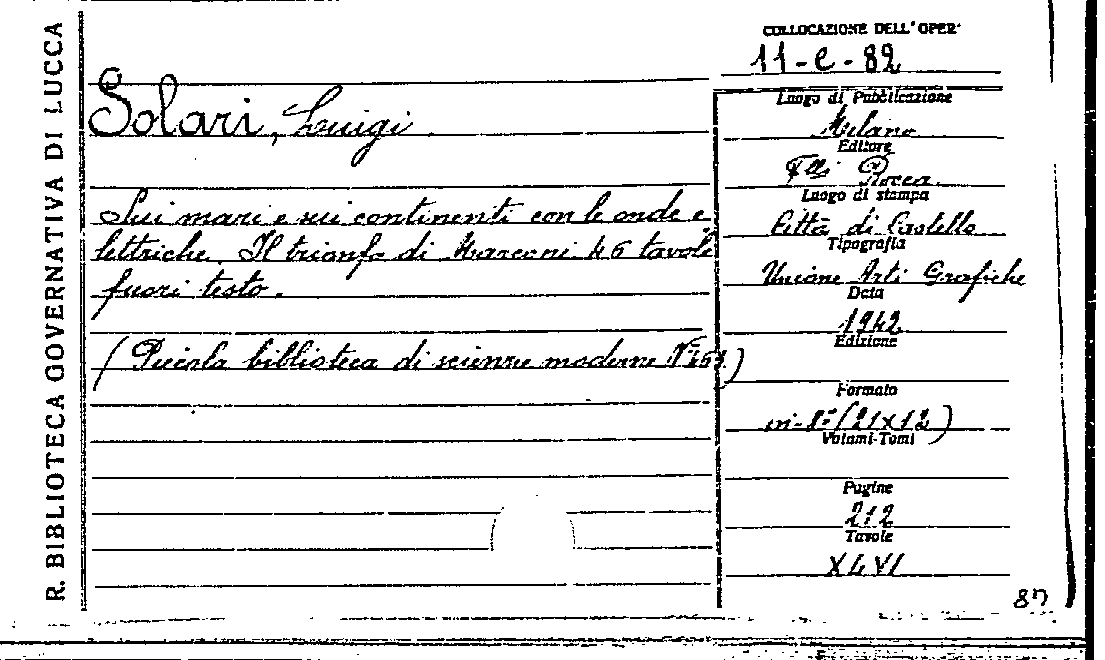 R. BIBLIOTECA GOVERNATIVA DI LUCCA
COLLOCAZIONE DELL'OPER
11-C-82
Solari, Luigi.
Sui mari e sui continenti con le onde e
lettriche. Il trionfo di Marconi 46 tavole
fuori testo.
(Piccola biblioteca di scienze moderne Nº 453)
Luogo di Pubblicazione
Milano
Editore
Flli Bocca.
Luogo di stampa
Città di Castello
Tipografia
Unione Arti Grafiche
Data
1942
Edizione
Formato
in-8º (21x12)
Volumi-Tomi
Pagine
212
Tavole
XLVI
87